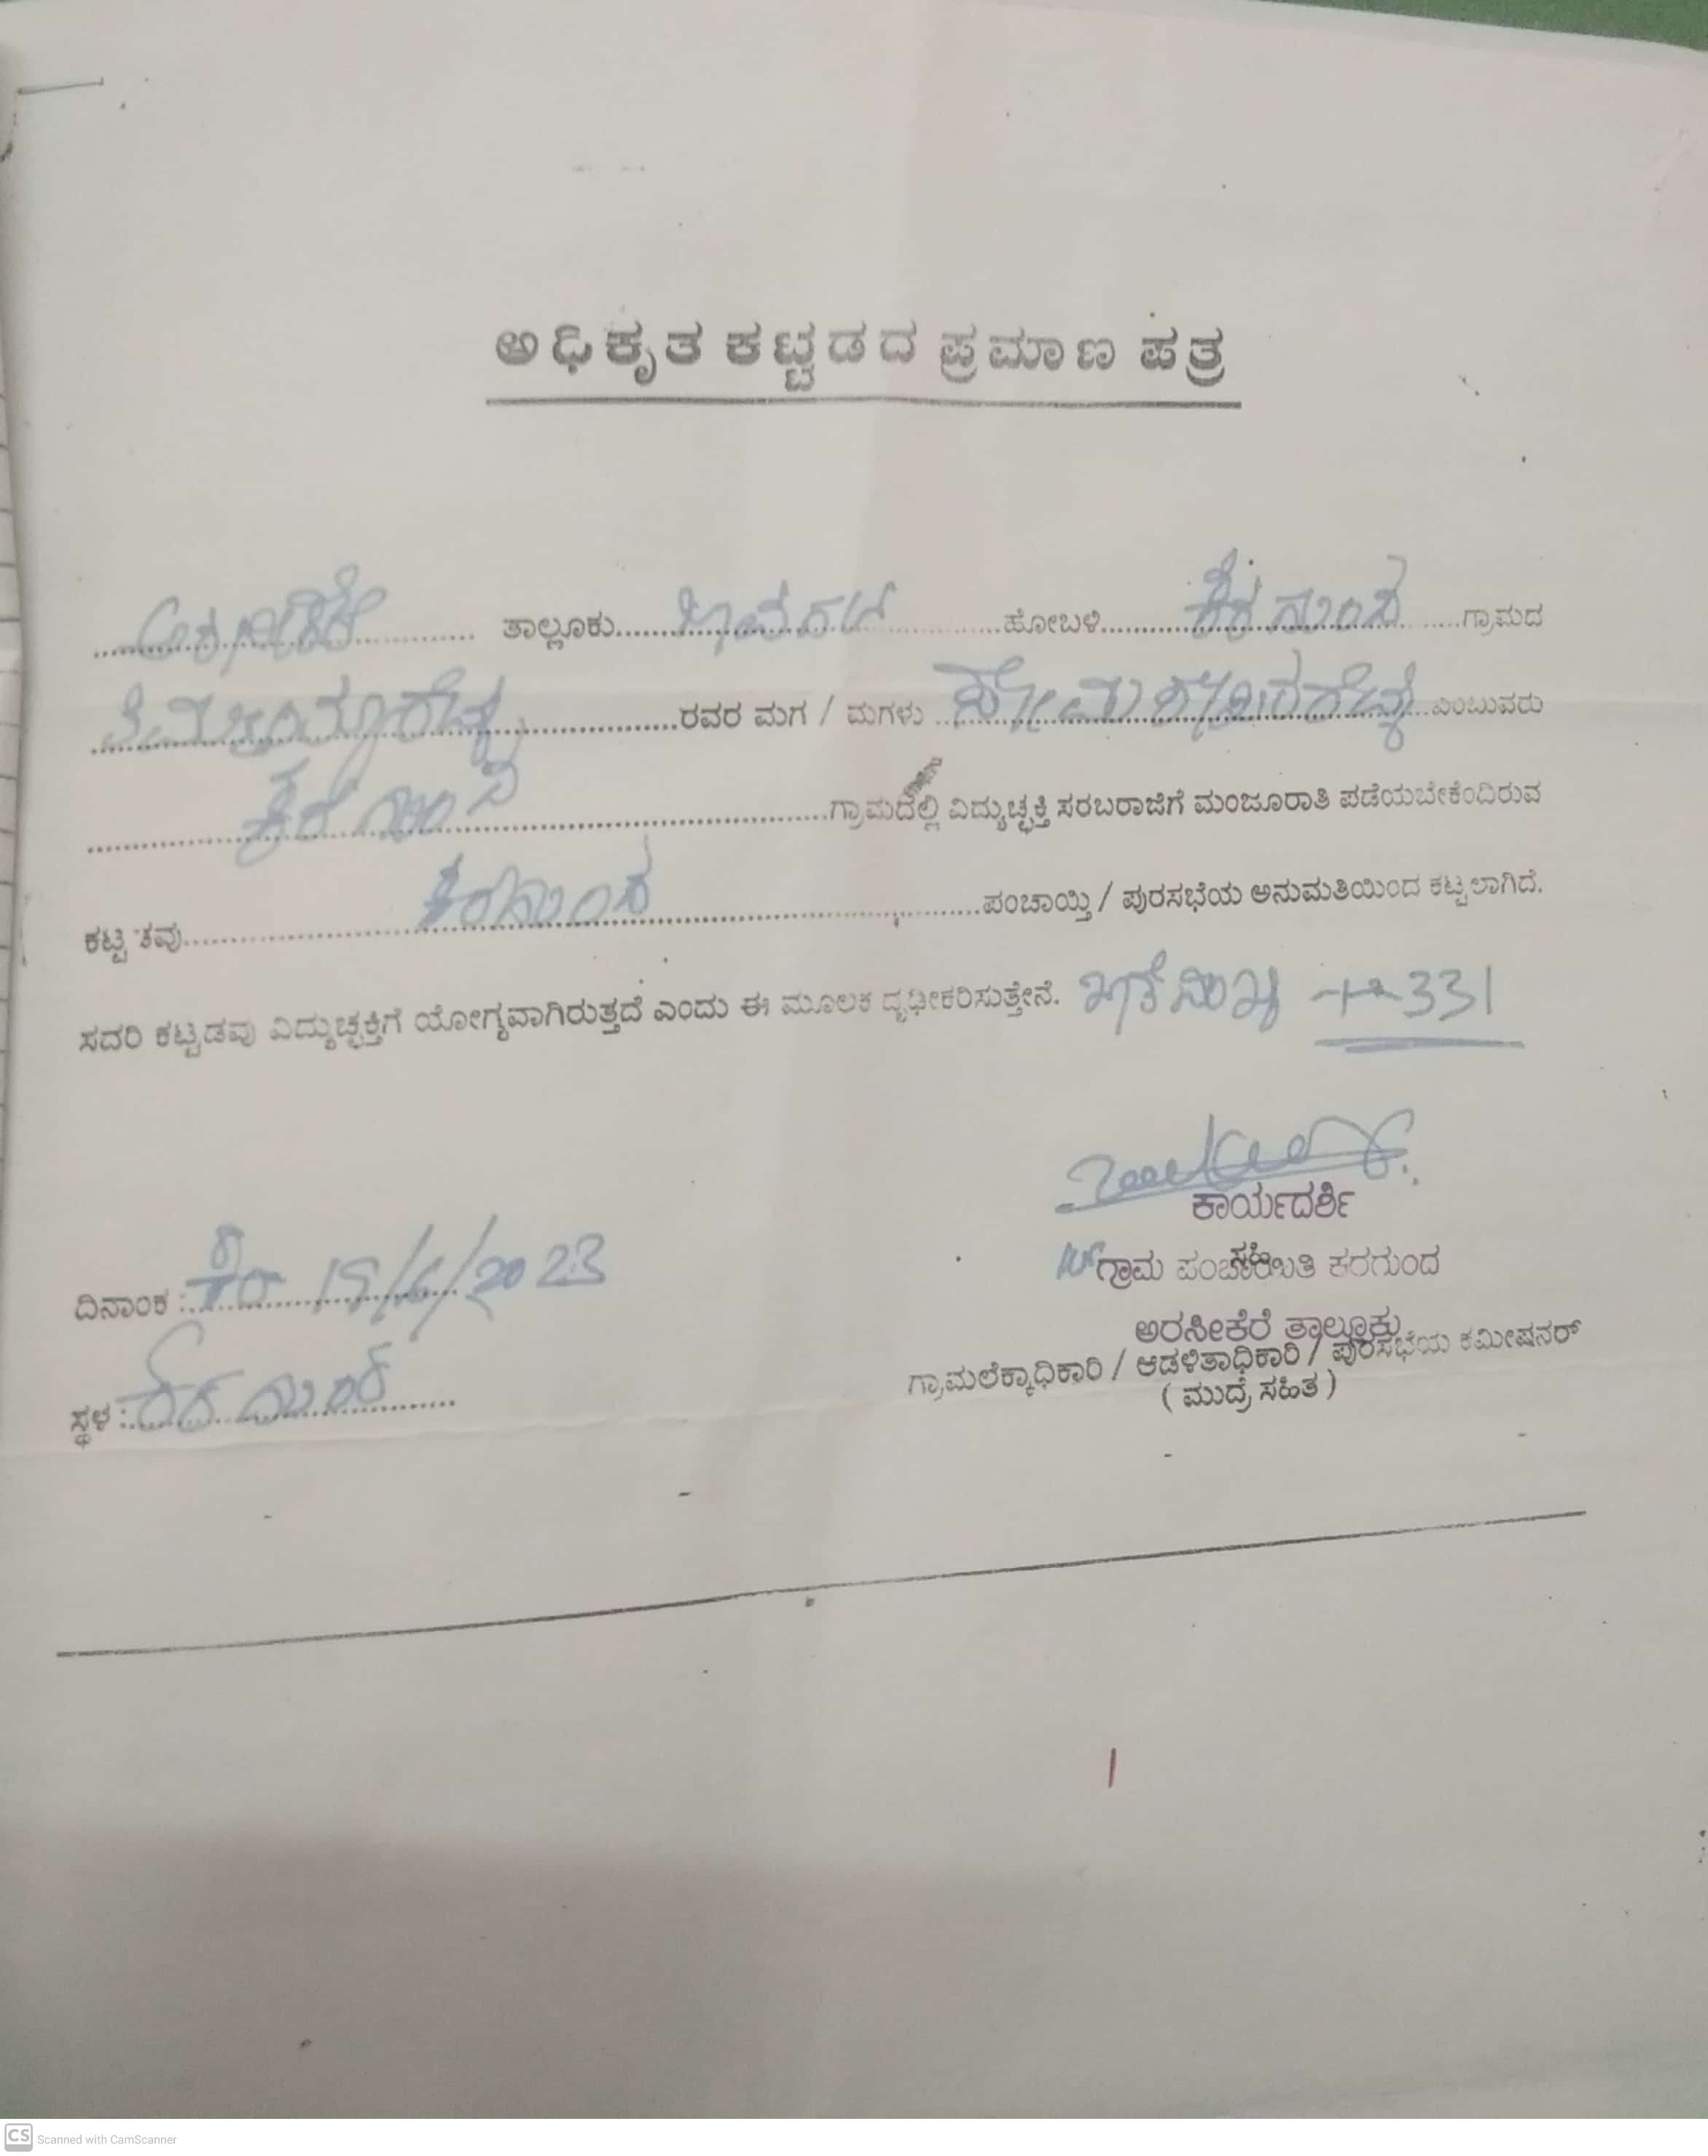 ಅಧಿಕೃತ ಕಟ್ಟಡದ ಪ್ರಮಾಣ ಪತ್ರ
ಅರಸೀಕೆರೆ ತಾಲ್ಲೂಕು ಜಾವಗಲ್ ಹೋಬಳಿ ಕರಗುಂದ ಗ್ರಾಮದ
ರವರ ಮಗ / ಮಗಳು ಸೋಮಶೇಖರ ಎಂಬುವರು
ಕರಗುಂದ ಗ್ರಾಮದಲ್ಲಿ ವಿದ್ಯುಚ್ಛಕ್ತಿ ಸರಬರಾಜಿಗೆ ಮಂಜೂರಾತಿ ಪಡೆಯಬೇಕೆಂದಿರುವ
ಕಟ್ಟಡವು ಕರಗುಂದ ಪಂಚಾಯ್ತಿ / ಪುರಸಭೆಯ ಅನುಮತಿಯಿಂದ ಕಟ್ಟಲಾಗಿದೆ.
ಸದರಿ ಕಟ್ಟಡವು ವಿದ್ಯುಚ್ಛಕ್ತಿಗೆ ಯೋಗ್ಯವಾಗಿರುತ್ತದೆ ಎಂದು ಈ ಮೂಲಕ ದೃಢೀಕರಿಸುತ್ತೇನೆ. 331
ಕಾರ್ಯದರ್ಶಿ
ಸಹಿ
ದಿನಾಂಕ : 15/6/2023
ಗ್ರಾಮ ಪಂಚಾಯಿತಿ ಕರಗುಂದ
ಅರಸೀಕೆರೆ ತಾಲ್ಲೂಕು
ಗ್ರಾಮಲೆಕ್ಕಾಧಿಕಾರಿ / ಆಡಳಿತಾಧಿಕಾರಿ / ಪುರಸಭೆಯ ಕಮೀಷನರ್
ಸ್ಥಳ : ಕರಗುಂದ
( ಮುದ್ರೆ ಸಹಿತ )
CS Scanned with CamScanner